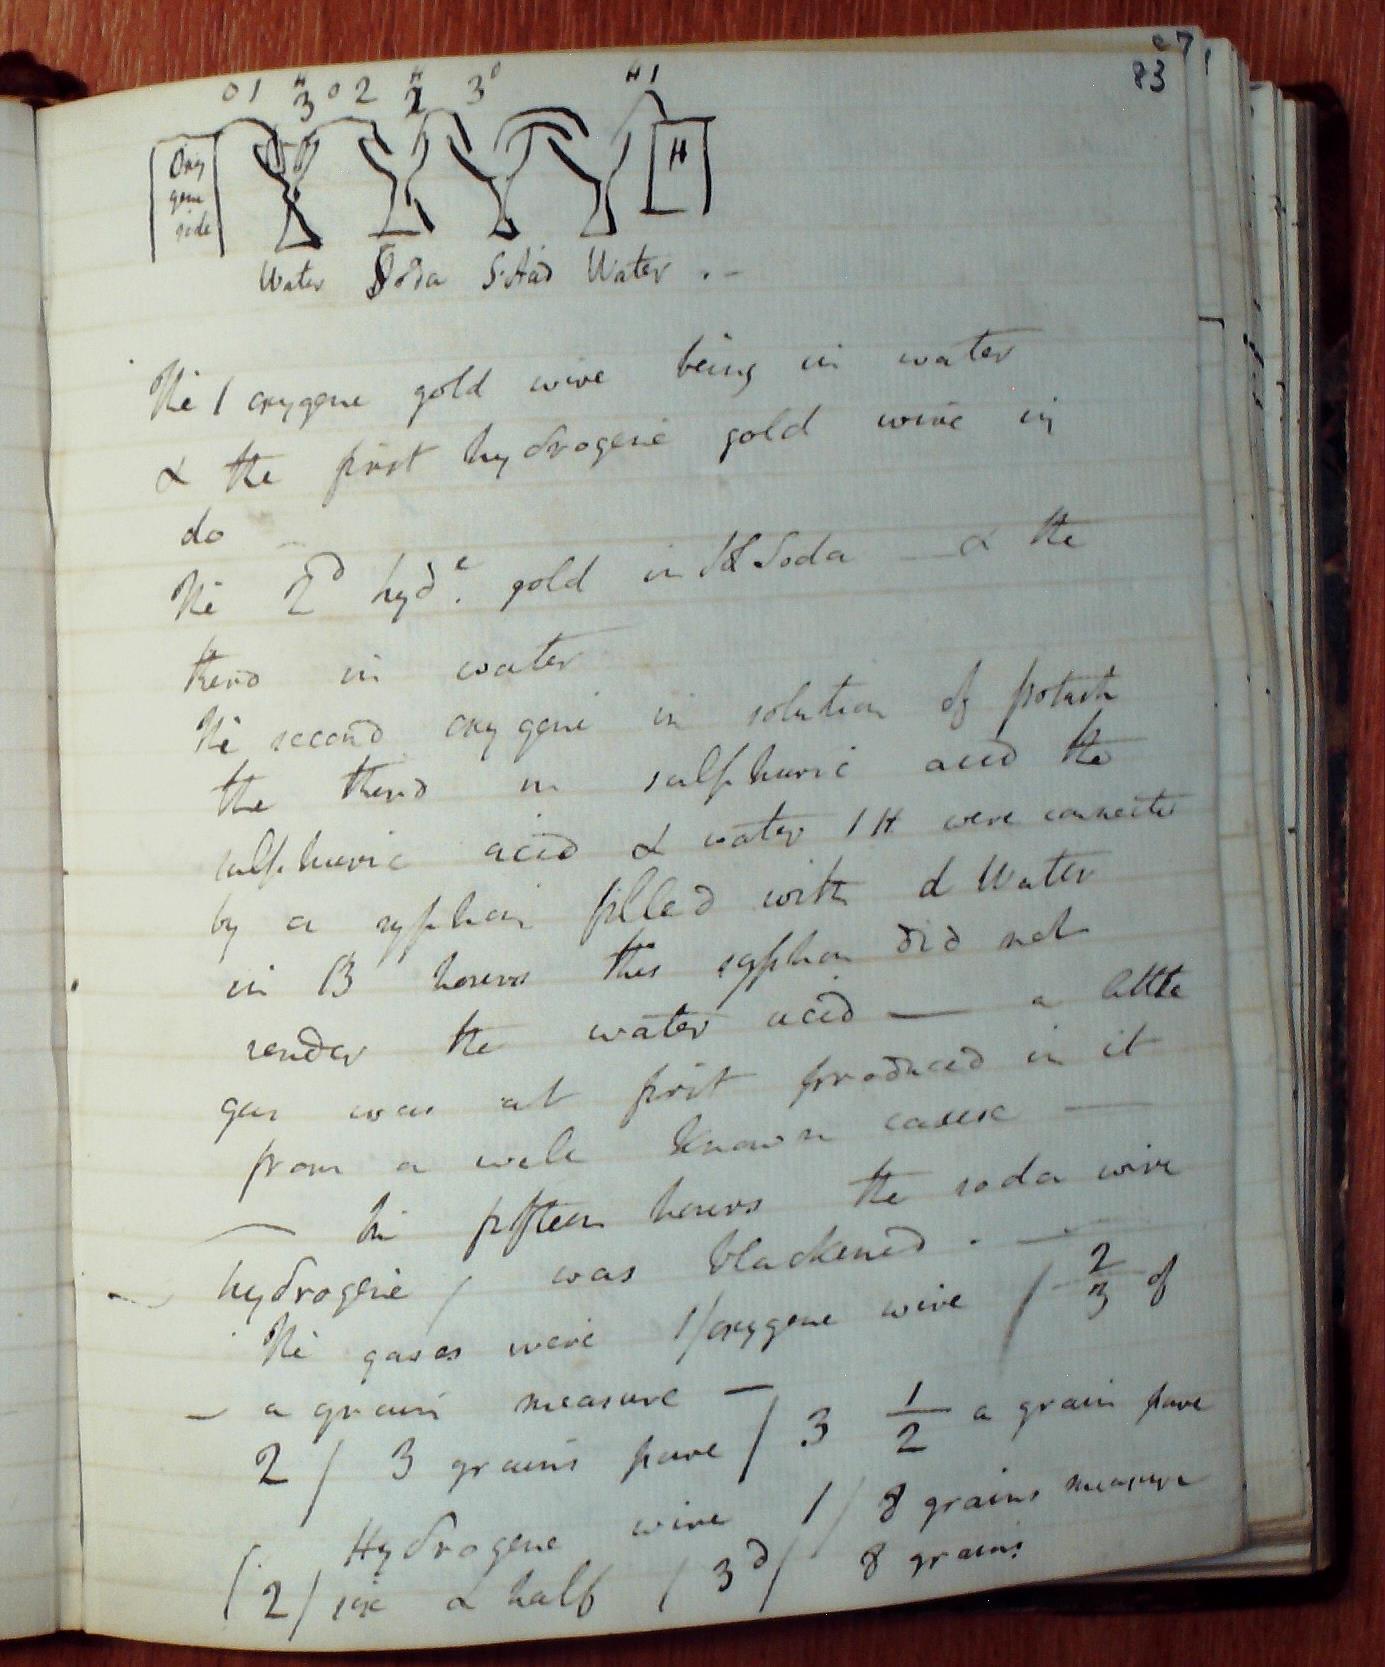 83
O 1 H 3 O 2 H 2 3 O H 1
Oxy
gene
side
H
Water Soda S. Acid Water . -
The 1 oxygene gold wire being in water
& the first hydrogene gold wire in
do
The 2d hyde. gold in Soda — & the
third in water
The second oxygene in solution of potash
the third in sulphuric acid the
sulphuric acid & water 1 H were connected
by a syphon filled with d Water
in 13 hours this syphon did not
render the water acid — a little
gas was at first produced in it
from a well known cause —
— In fifteen hours the soda wire
hydrogene / was blackened . —
The gases were 1/oxygene wire / 2/3 of
— a grain measure —
2 / 3 grains pure / 3 1/2 a grain pure
Hydrogene wire 1 / 8 grains measure
/ 2 / six & half / 3d / 8 grains